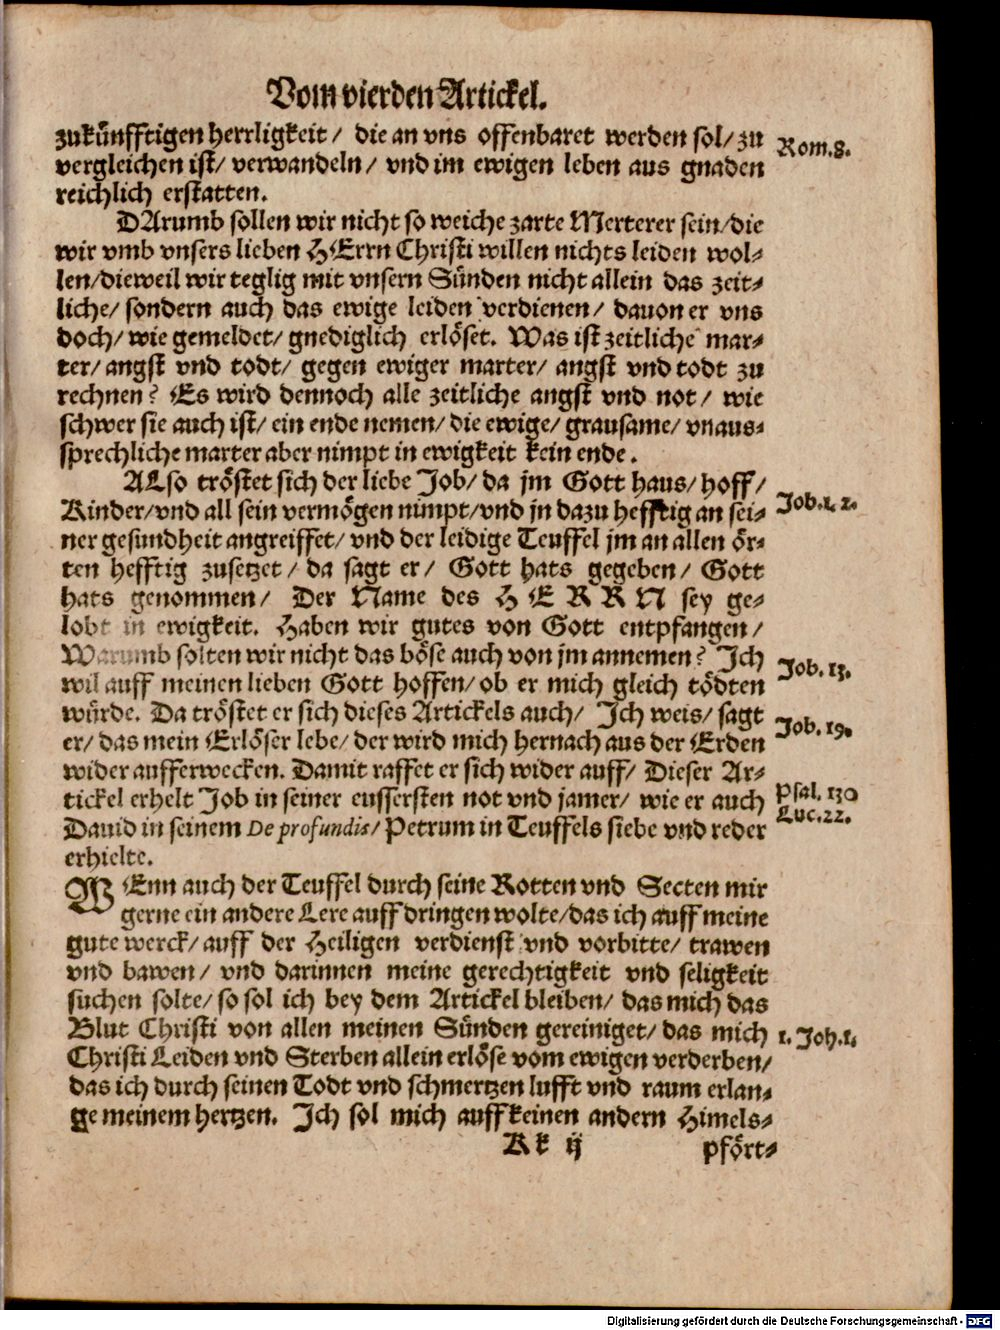 Vom vierden Artickel.
zukünfftigen herrligkeit/ die an vns offenbaret werden sol/ zu
Rom.8.
vergleichen ist/ verwandeln/ vnd im ewigen leben aus gnaden
reichlich erstatten.
DArumb sollen wir nicht so weiche zarte Merterer sein/die
wir vmb vnsers lieben HErrn Christi willen nichts leiden wol⸗
len/dieweil wir teglig mit vnsern Sünden nicht allein das zeit⸗
liche/ sondern auch das ewige leiden verdienen/ dauon er vns
doch/ wie gemeldet/ gnediglich erlöset. Was ist zeitliche mar⸗
ter/ angst vnd todt/ gegen ewiger marter/ angst vnd todt zu
rechnen? Es wird dennoch alle zeitliche angst vnd not/ wie
schwer sie auch ist/ ein ende nemen/ die ewige/ grausame/ vnaus⸗
sprechliche marter aber nimpt in ewigkeit kein ende.
ALso tröstet sich der liebe Job/ da jm Gott haus/ hoff/
Job.1. 2.
Kinder/vnd all sein vermögen nimpt/vnd jn dazu hefftig an sei⸗
ner gesundheit angreiffet/ vnd der leidige Teuffel jm an allen ör⸗
ten hefftig zusetzet/ da sagt er/ Gott hats gegeben/ Gott
hats genommen/ Der Name des HERRN sey ge⸗
lobt in ewigkeit. Haben wir gutes von Gott entpfangen/
Warumb solten wir nicht das böse auch von jm annemen? Ich
Job. 13.
wil auff meinen lieben Gott hoffen/ ob er mich gleich tödten
würde. Da tröstet er sich dieses Artickels auch/ Ich weis/ sagt
Job. 19.
er/ das mein Erlöser lebe/ der wird mich hernach aus der Erden
wider aufferwecken. Damit raffet er sich wider auff/ Dieser Ar⸗
tickel erhelt Job in seiner eussersten not vnd jamer/ wie er auch
Psal. 130
Dauid in seinem De profundis/ Petrum in Teuffels siebe vnd reder
Luc.22.
erhielte.
WEnn auch der Teuffel durch seine Rotten vnd Secten mir
gerne ein andere Lere auff dringen wolte/das ich auff meine
gute werck/ auff der Heiligen verdienst vnd vorbitte/ trawen
vnd bawen/ vnd darinnen meine gerechtigkeit vnd seligkeit
suchen solte/ so sol ich bey dem Artickel bleiben/ das mich das
Blut Christi von allen meinen Sünden gereiniget/ das mich
1. Joh.1.
Christi Leiden vnd Sterben allein erlöse vom ewigen verderben/
das ich durch seinen Todt vnd schmertzen lufft vnd raum erlan⸗
ge meinem hertzen. Ich sol mich auff keinen andern Himels⸗
Kk ij
pfört⸗
Digitalisierung gefördert durch die Deutsche Forschungsgemeinschaft - DFG